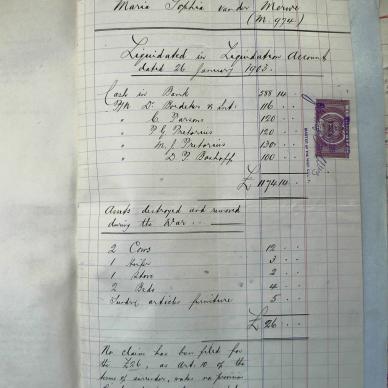 Maria Sophia van der Merwe
(M. 974)
Liquidated in Liquidation Account
dated 26 January 1903.
Cash in Bank 588 14 ..
P/N D. & Int. 116 . .
" C. Parsons 120 . .
" P G Pretorius 120 . .
" M. J. Pretorius 130 . .
" D P Boshoff 100 . .
£ 1174 14 .
Assets destroyed and removed
during the War ..
2 Cows 12 . .
1 Heifer 3 . .
1 Stove 2 . .
2 Beds 4 . .
Sundry articles furniture 5 . .
£ 26 . .
No claim has been filed for
the £26, as Art. 10 of the
terms of surrender, makes no provision